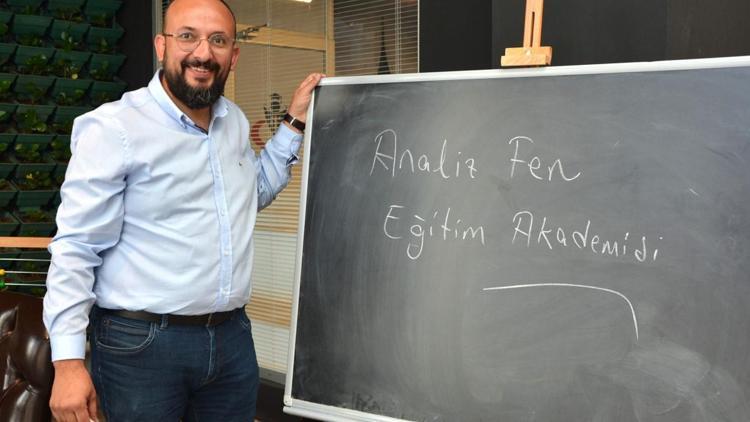 Analiz Fen
Eğitim Akademisi